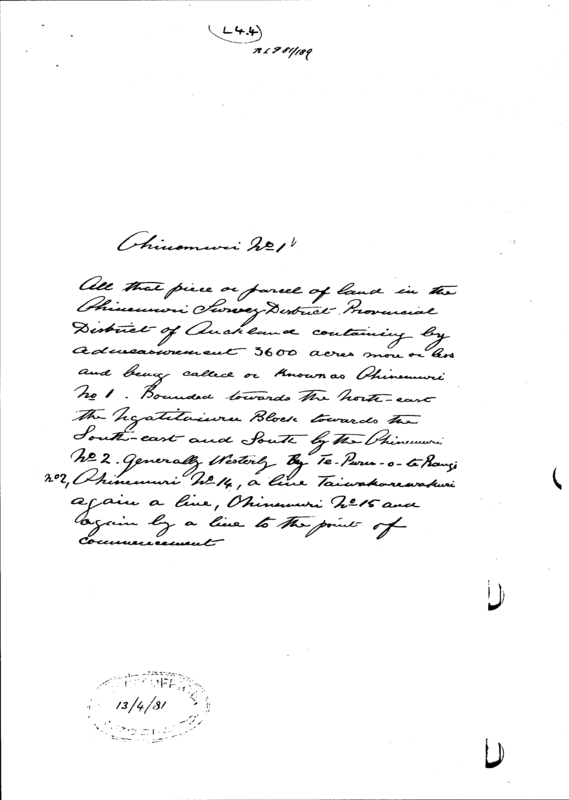 L 4.4
NLP 81/189
Ohinemuri No 1
All that piece or parcel of land in the
Ohinemuri Survey District Provincial
District of Auckland containing by
admeasurement 3600 acres more or less
and being called or known as Ohinemuri
No 1. Bounded towards the North-east
the Ngatitaiuru Block towards the
South-east and South by the Ohinemuri
No 2. Generally Westerly By Te-Puru-o-te Rangi
No 2, Ohinemuri No 14, a line Taiwakarewakuri
again a line, Ohinemuri No 15 and
again by a line to the point of
commencement
13/4/81